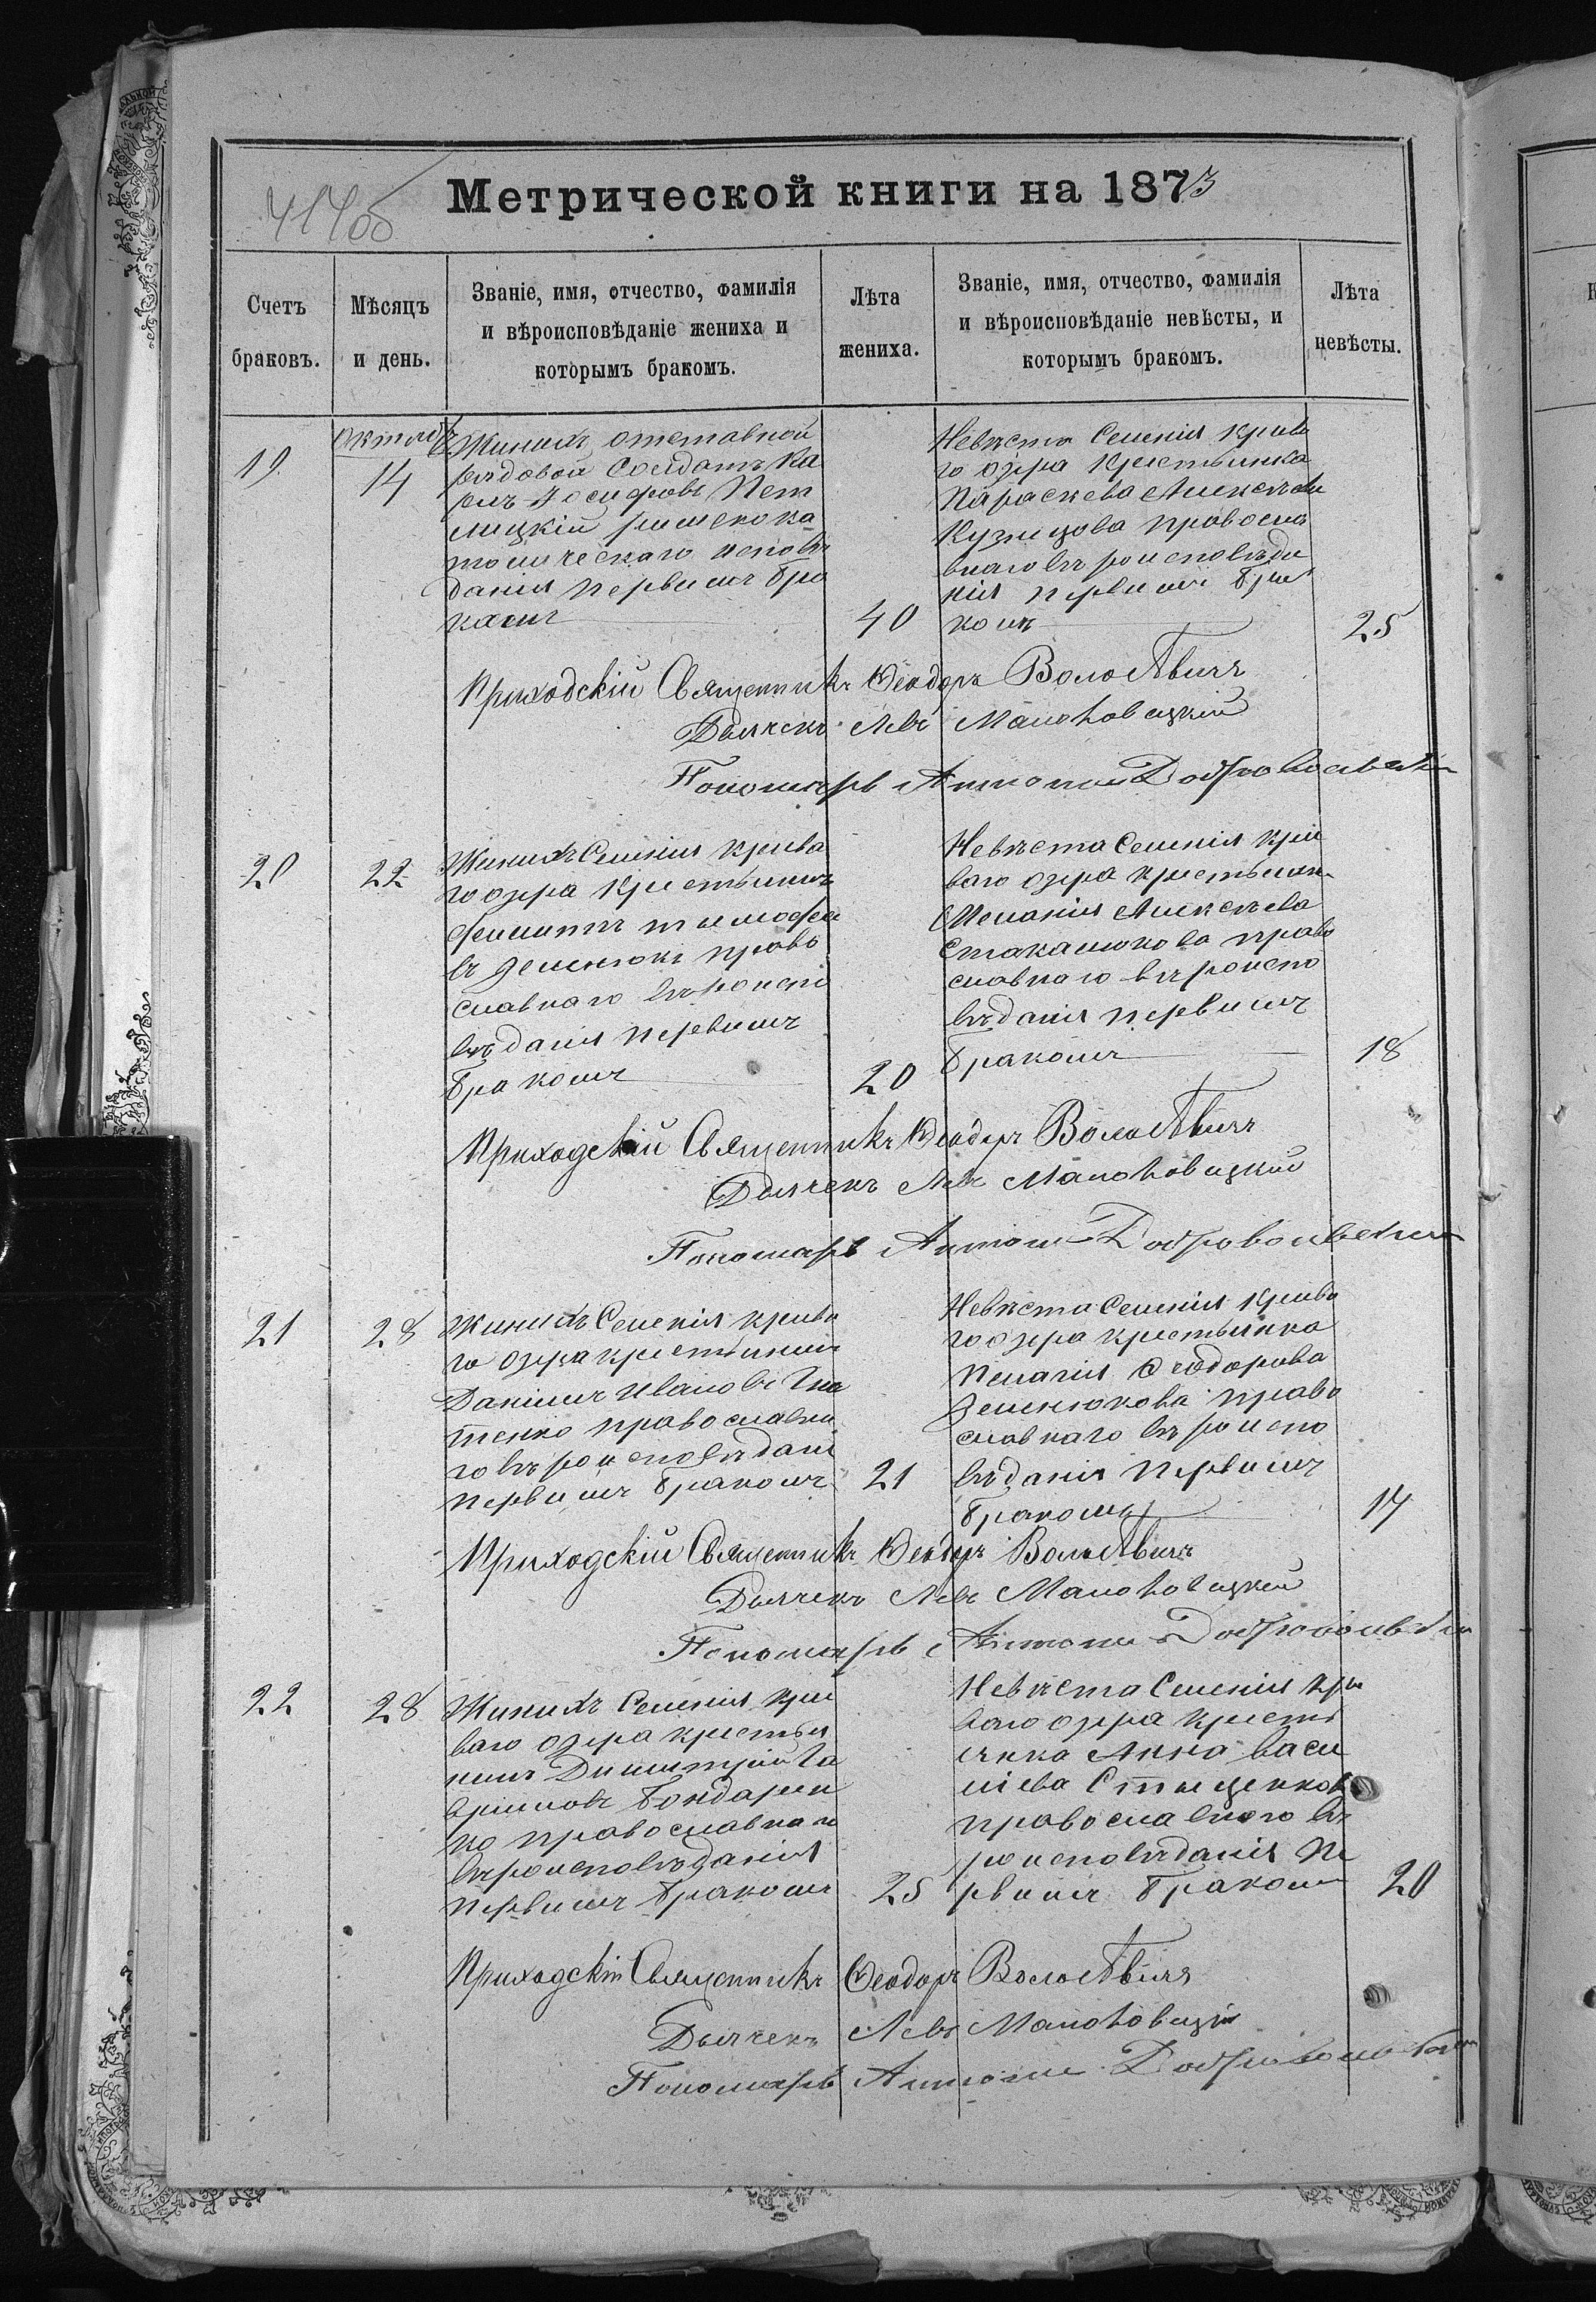 414об
Метрической книги на 1873
Счетъ браковъ.
Мѣсяцъ и день.
Званіе, имя, отчество, фамилія и вѣроисповѣданіе жениха и которымъ бракомъ.
Лѣта жениха.
Званіе, имя, отчество, фамилія и вѣроисповѣданіе невѣсты, и которымъ бракомъ.
Лѣта невѣсты.
19
Октября
14
Жинихъ отставной
рядовой Солдатъ Ка
рлъ Іосифовъ Пет
лицкій римскока
толическаго исповѣ
данія первимъ бра
комъ
40
Невѣста Селенія криво
го озера крестьянка
Параскева Алексѣева
Кузнецова правосла
внаго вѣроисповѣда
нія первимъ бра
комъ
25
Приходскій Священникъ Ѳеодоръ
Дьячекъ Левъ Малоховицкій
Пономарь Антоній
20
22
Жинихъ Селенія крива
го озера крестьянинъ
Филиппъ тимофее
въ Зеленюкъ право
славнаго вѣроиспо
вѣданія первимъ
бракомъ
20
Невѣста Селенія кри
ваго озера крестьянк
Меланія Алексѣева
Стаканюкова право
славнаго вѣроиспо
вѣданія первимъ
бракомъ
18
Приходскій Священникъ Ѳеодоръ
Дьячекъ Левъ Малоховицкій
Пономарь Антоній
21
28
Жинихъ Селенія криво
го озера крестьянинъ
Даніилъ Ивановъ Гна
тенко православна
го вѣроисповѣданія
первимъ бракомъ
21
Невѣста Селенія криво
го озера крестьянка
Пелагія Ѳеодорова
Зеленюкова право
славнаго вѣроиспо
вѣданія первимъ
бракомъ
17
Приходскій Священникъ Ѳеодоръ
Дьячекъ Левъ Малоховицкій
Пономарь Антоній
22
28
Жинихъ Селенія кри
ваго озера крестья
нинъ Димитрій Га
вриловъ Бондарен
ко православнаго
вѣроисповѣданія
первимъ бракомъ
25
Невѣста Селенія кри
ваго озера кресть
янка Анна васи
лиева Стыценкова
православнаго вѣ
роисповѣданія пе
рвимъ бракомъ
20
Приходскій Священникъ Ѳеодоръ
Дьячекъ Левъ Малоховицкій
Пономарь Антоній